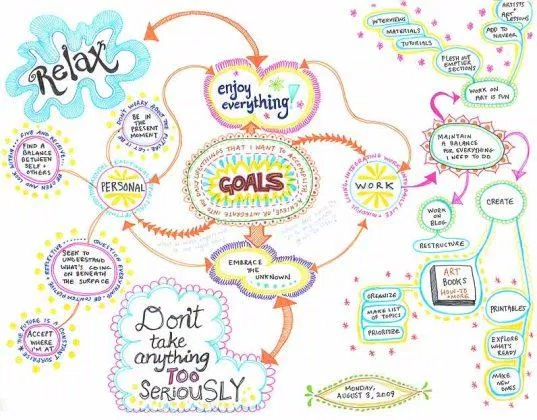 Relax
enjoy
everything!
DON'T WORRY ABOUT THE
FUTURE
BE IN
THE
PRESENT
MOMENT
GIVE AND RECEIVE
FIND A
BALANCE
BETWEEN
SELF +
OTHERS
BE OPEN AND
PERSONAL
THINGS THAT I WANT TO ACCOMPLISH, ACHIEVE, OR INTEGRATE INTO MY
GOALS
WORK
INTEGRATING WORK INTO
LIFE
EMBRACE
THE
UNKNOWN
REFLECTIVE
QUESTION EVERYTHING
BE CONTEMPLATIVE
SEEK TO
UNDERSTAND
WHAT'S GOING
ON BENEATH
THE SURFACE
THE FUTURE IS A CONSTANT SURPRISE
ACCEPT
WHERE
I'M AT
Don't
take
anything
TOO
SERIOUSLY
INTERVIEWS
MATERIALS
TUTORIALS
FLESH OUT
EMPTIER
SECTIONS
ARTISTS
+
ART
LESSONS
ADD TO
NAVBAR
WORK ON
ART IS FUN
MAINTAIN
A BALANCE
FOR EVERYTHING
I NEED TO DO
WORK
ON
BLOG
RESTRUCTURE
CREATE
ART
BOOKS
HOW-TO
+ MORE
ORGANIZE
MAKE LIST
OF TOPICS
PRIORITIZE
PRINTABLES
EXPLORE
WHAT'S
READY
MAKE
NEW
ONES
MONDAY,
AUGUST 3, 2009